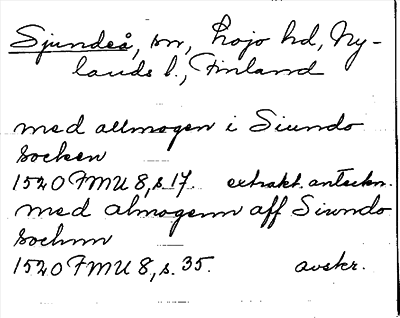 Sjundeå, sn, Lojo hd, Ny-
lands l., Finland
med allmogen i Siundo
socken
1520 FMU 8, s. 17. extrakt. anteckn.
med almogenn aff Siundo
sochnn
1520 FMU 8, s. 35. avskr.